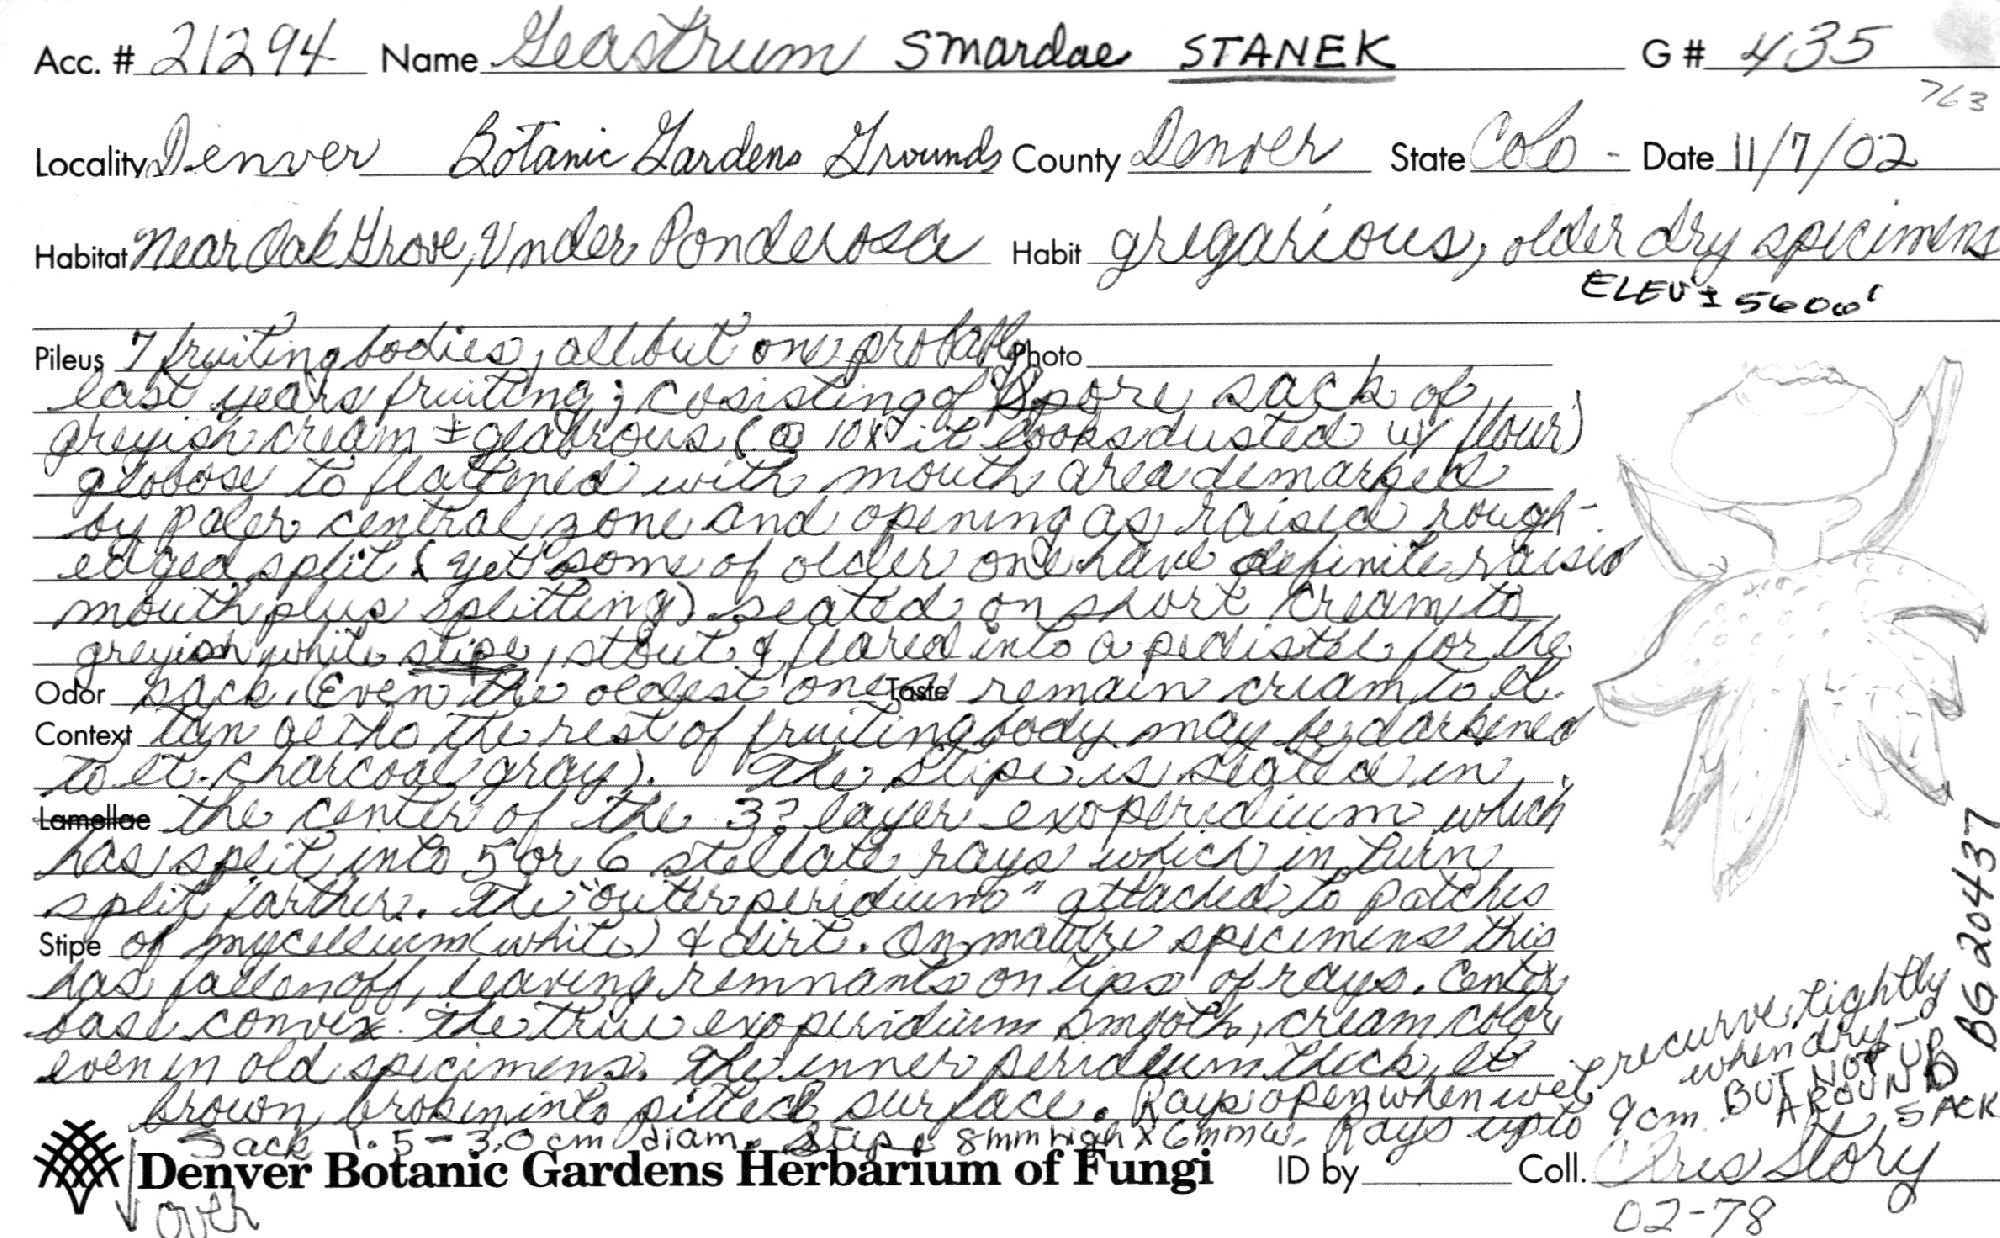 Acc. # 21294 Name Geastrum Smardae STANEK G # 435
763
Locality Denver Botanic Gardens Grounds County Denver State Colo - Date 11/7/02
Habitat Near Oak Grove, Under Ponderosa Habit gregarious, older dry specimens
ELEV ± 5600'
Pileus 7 fruiting bodies, all but one probably Photo
last years fruiting; cosisting of spore sack of
greyish cream ± glabrous (@ 10x it looks dusted w/ flour)
globose to flattened with mouth area demarked
by paler central zone and opening as raised rough-
edged split (yet some of older one have definite raised
mouth plus splitting) seated on short cream to
greyish white stipe, stout & flared into a pedistel for the
Odor sack. (Even the oldest ones Taste remain cream to lt.
Context tan altho the rest of fruiting body may be darkened
to lt. charcoal gray). The stipe is seated in
Lamellae the center of the 3? layer exoperidium which
has split into 5 or 6 stellate rays which in turn
split farther. The "outer peridium" attached to patches
Stipe of mycellium (white) & dirt. On mature specimens this
has fallen off, leaving remnants on tips of rays. Center
base convex. The true exoperidium smooth, cream color
even in old specimens. The inner peridium thick, lt
brown broken into pitted surface. Rays open when wet, recurve tightly
when dry -
BUT NOT UP
AROUND
SACK
Sack 1.5 - 3.0 cm diam. Stipe 8mm high x 6mm w. Rays up to 9 cm.
Denver Botanic Gardens Herbarium of Fungi ID by Coll. Chris Story
over
02-78
BG 20437